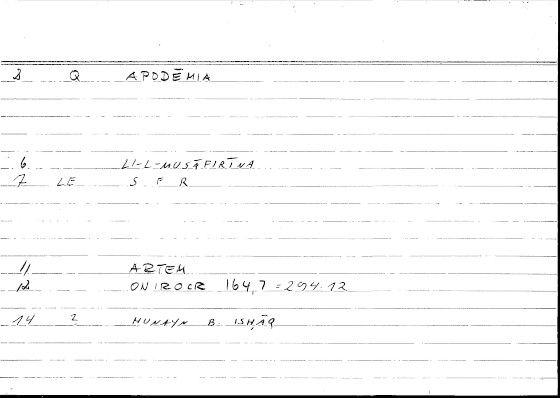 3 Q APODĒMIA
6 LI-L-MUSĀFIRĪNA
7 LE S F R
11 ARTEM
12 ONIROCR 164,7 = 294.12
14 2 HUNAYN B ISḤĀQ